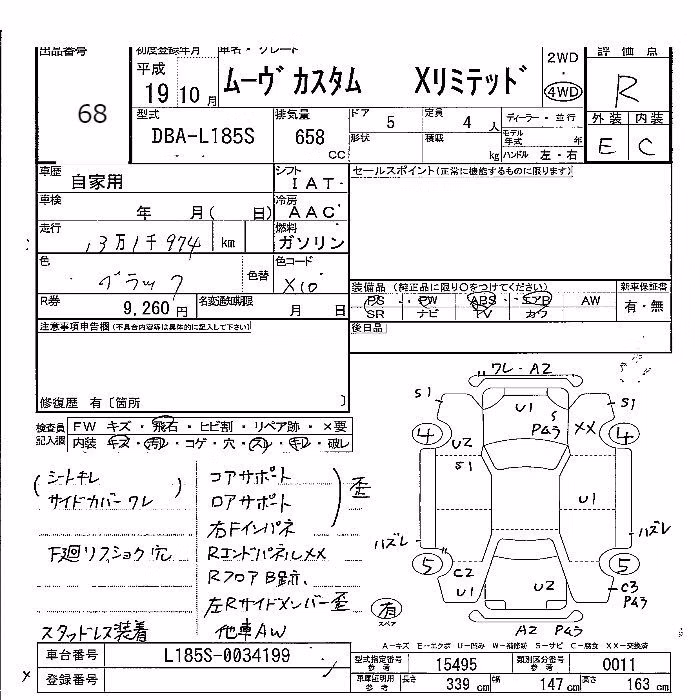 出品番号 初度登録年月 車名・グレード 2WD 評価点
68 平成 19 10月 ムーヴカスタム Xリミテッド ・ 4WD R
型式 排気量 ドア 5 定員 4人 ディーラー・並行 外装 内装
DBA-L185S 658 CC 形状 積載 kg モデル年式 年 ハンドル 左・右 E C
車歴 自家用 シフト IAT セールスポイント(正常に機能するものに限ります)
車検 年 月( 日) 冷房 AAC
走行 13万1千974 km 燃料 ガソリン
色 ブラック 色替 色コード X10
装備品 (純正品に限り○をつけてください) 新車保証書
PS PW ABS エアB AW 有・無
SR ナビ TV カワ
R券 9,260円 名変通知期限 月 日
後日品
注意事項申告欄(不具合内容等は具体的に記入して下さい)
修復歴 有〔箇所 〕
検査員記入欄 FW キズ・飛石・ヒビ割・リペア跡・×要
内装 キズ・汚れ・コゲ・穴・スレ・キレ・破レ
(シートキレ
サイドカバーワレ)
F廻リプショウ穴
スタッドレス装着
コアサポート
ロアサポート
歪
右Fインパネ
RエンドパネルXX
RフロアB跡.
左Rサイドメンバー歪
他車AW
ワレ・A2
S1 U1 S P43 XX S1
4 U2 4
S1 U1
ハズレ ハズレ
5 C2 5
U1 U2 C3 P43
有 スペア
A2 P43
A=キズ E=エクボ U=凹み W=補修跡 S=サビ C=腐食 XX=交換済
車台番号 L185S-0034199
登録番号
型式指定番号 参考 15495 類別区分番号 参考 0011
車庫証明用 参考 長さ 339cm 幅 147cm 高さ 163cm